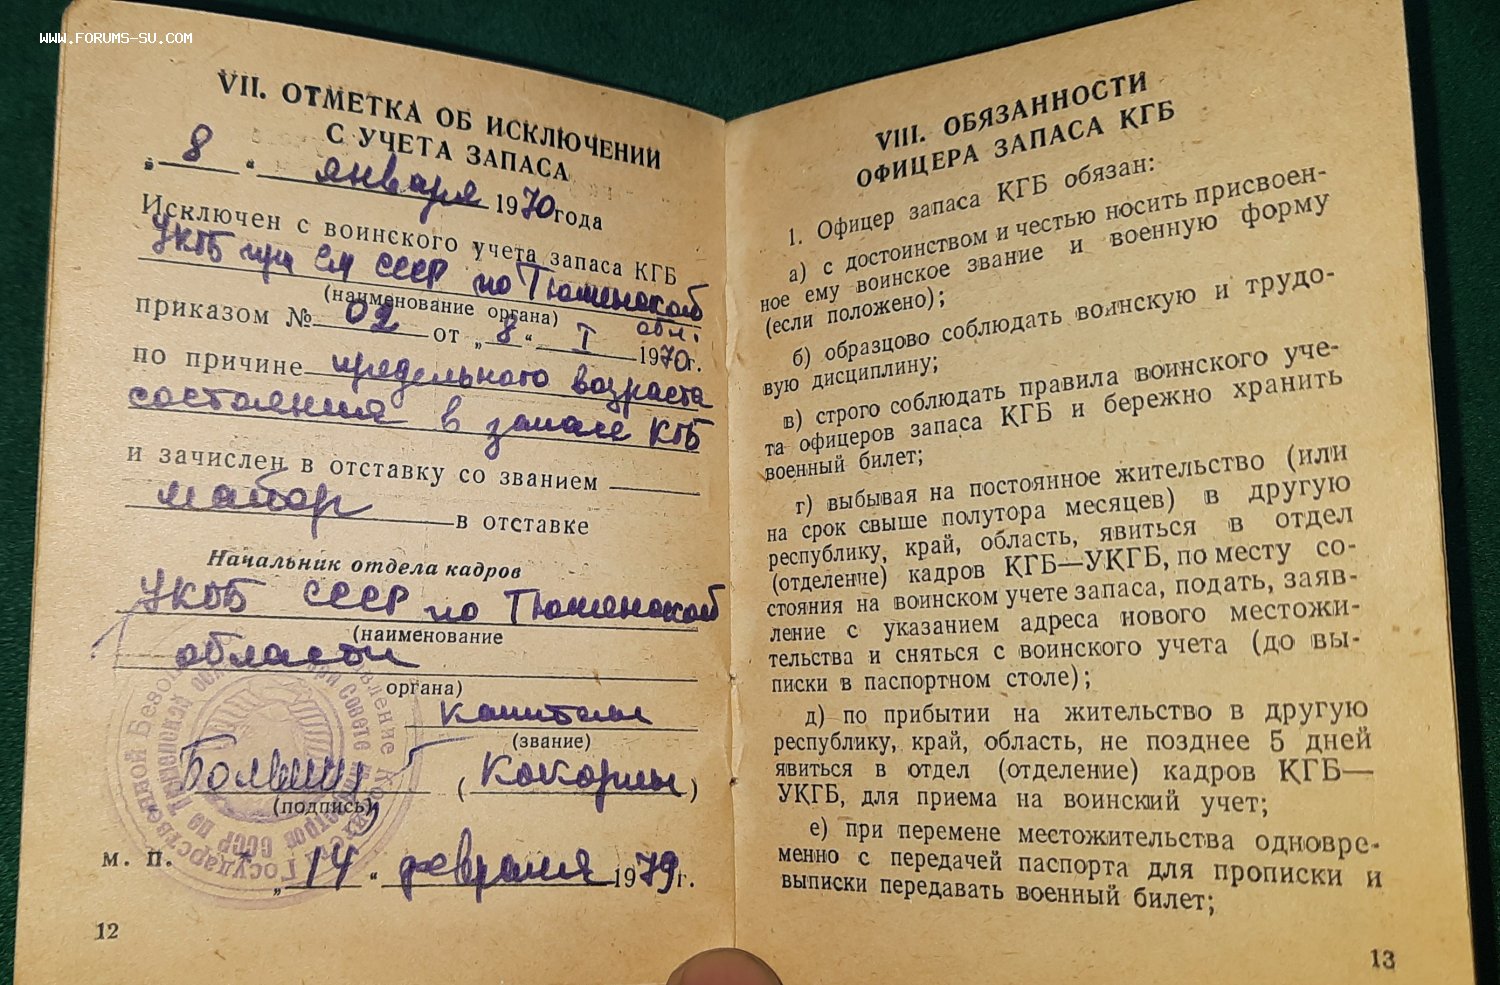 WWW.FORUMS-SU.COM
VII. ОТМЕТКА ОБ ИСКЛЮЧЕНИИ
С УЧЕТА ЗАПАСА
„ 8 “ января 1970 года
Исключен с воинского учета запаса КГБ
УКГБ при СМ СССР по Тюменской
(наименование органа)
обл.
приказом № 02 от „ 8 “ I 1970г.
по причине предельного возраста
состояния в запасе КГБ
и зачислен в отставку со званием
майор в отставке
Начальник отдела кадров
УКГБ СССР по Тюменской
(наименование
области
органа)
капитан
(звание)
(подпись)
м. п. „ 14 “ февраля 1979г.
12
VIII. ОБЯЗАННОСТИ
ОФИЦЕРА ЗАПАСА КГБ
1. Офицер запаса КГБ обязан:
а) с достоинством и честью носить присвоен-
ное ему воинское звание и военную форму
(если положено);
б) образцово соблюдать воинскую и трудо-
вую дисциплину;
в) строго соблюдать правила воинского уче-
та офицеров запаса КГБ и бережно хранить
военный билет;
г) выбывая на постоянное жительство (или
на срок свыше полутора месяцев) в другую
республику, край, область, явиться в отдел
(отделение) кадров КГБ—УКГБ, по месту со-
стояния на воинском учете запаса, подать, заяв-
ление с указанием адреса нового местожи-
тельства и сняться с воинского учета (до вы-
писки в паспортном столе);
д) по прибытии на жительство в другую
республику, край, область, не позднее 5 дней
явиться в отдел (отделение) кадров КГБ—
УКГБ, для приема на воинский учет;
е) при перемене местожительства одновре-
менно с передачей паспорта для прописки и
выписки передавать военный билет;
13